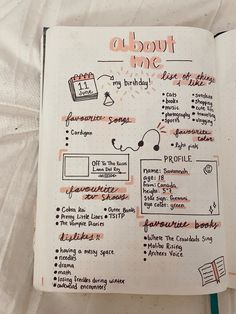 about
me
11
June
my birthday!
list of things
i like
• cats
• books
• music
• photography
• sports
• sunshine
• shopping
• cute cafes
• travelling
• vlogging
favourite songs
• Cardigan
favourite
color
• light pink
Off To The Races
Lana Del Rey
PROFILE
name: Savannah
age: 18
from: Canada
height: 5'4
Star sign: Gemini
eye color: green
favourite
tv shows
• Cobra Kai
• Pretty Little Liars
• The Vampire Diaries
• Outer Banks
• TSITP
dislikes!!
• having a messy space
• needles
• drama
• math
• losing friends during winter
• awkward encounters
favourite books
• Where The Crawdads Sing
• Malibu Rising
• Archers Voice